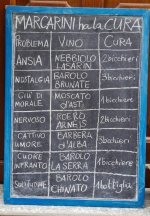 MARCARINI ha la CURA
PROBLEMA VINO CURA
ANSIA NEBBIOLO LASARIN 2 bicchieri
NOSTALGIA BAROLO BRUNATE 3 bicchieri
GIÙ DI MORALE MOSCATO d'ASTI 1 bicchiere
NERVOSO ROERO ARNEIS 2 bicchieri
CATTIVO UMORE BARBERA d'ALBA 3 bicchieri
CUORE INFRANTO BAROLO LA SERRA 1 bicchiere
BAROLO CHINATO 1 bottiglia